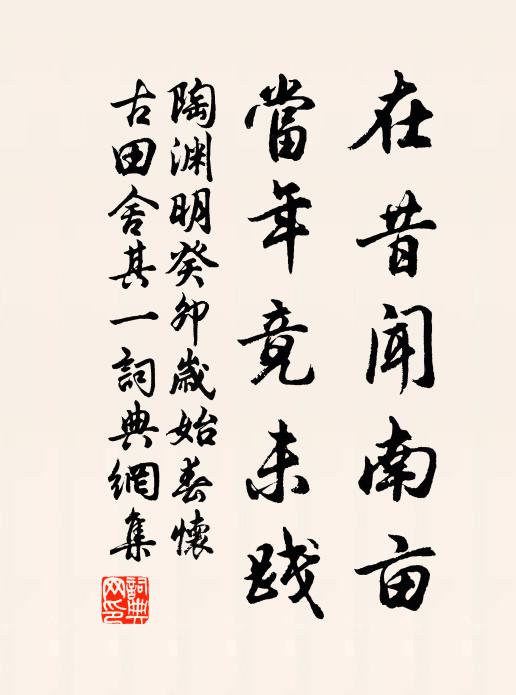 在昔闻南亩
當年竟未践
陶渊明癸卯歳始春懷
古田舍其一詞典網集
詞典网印